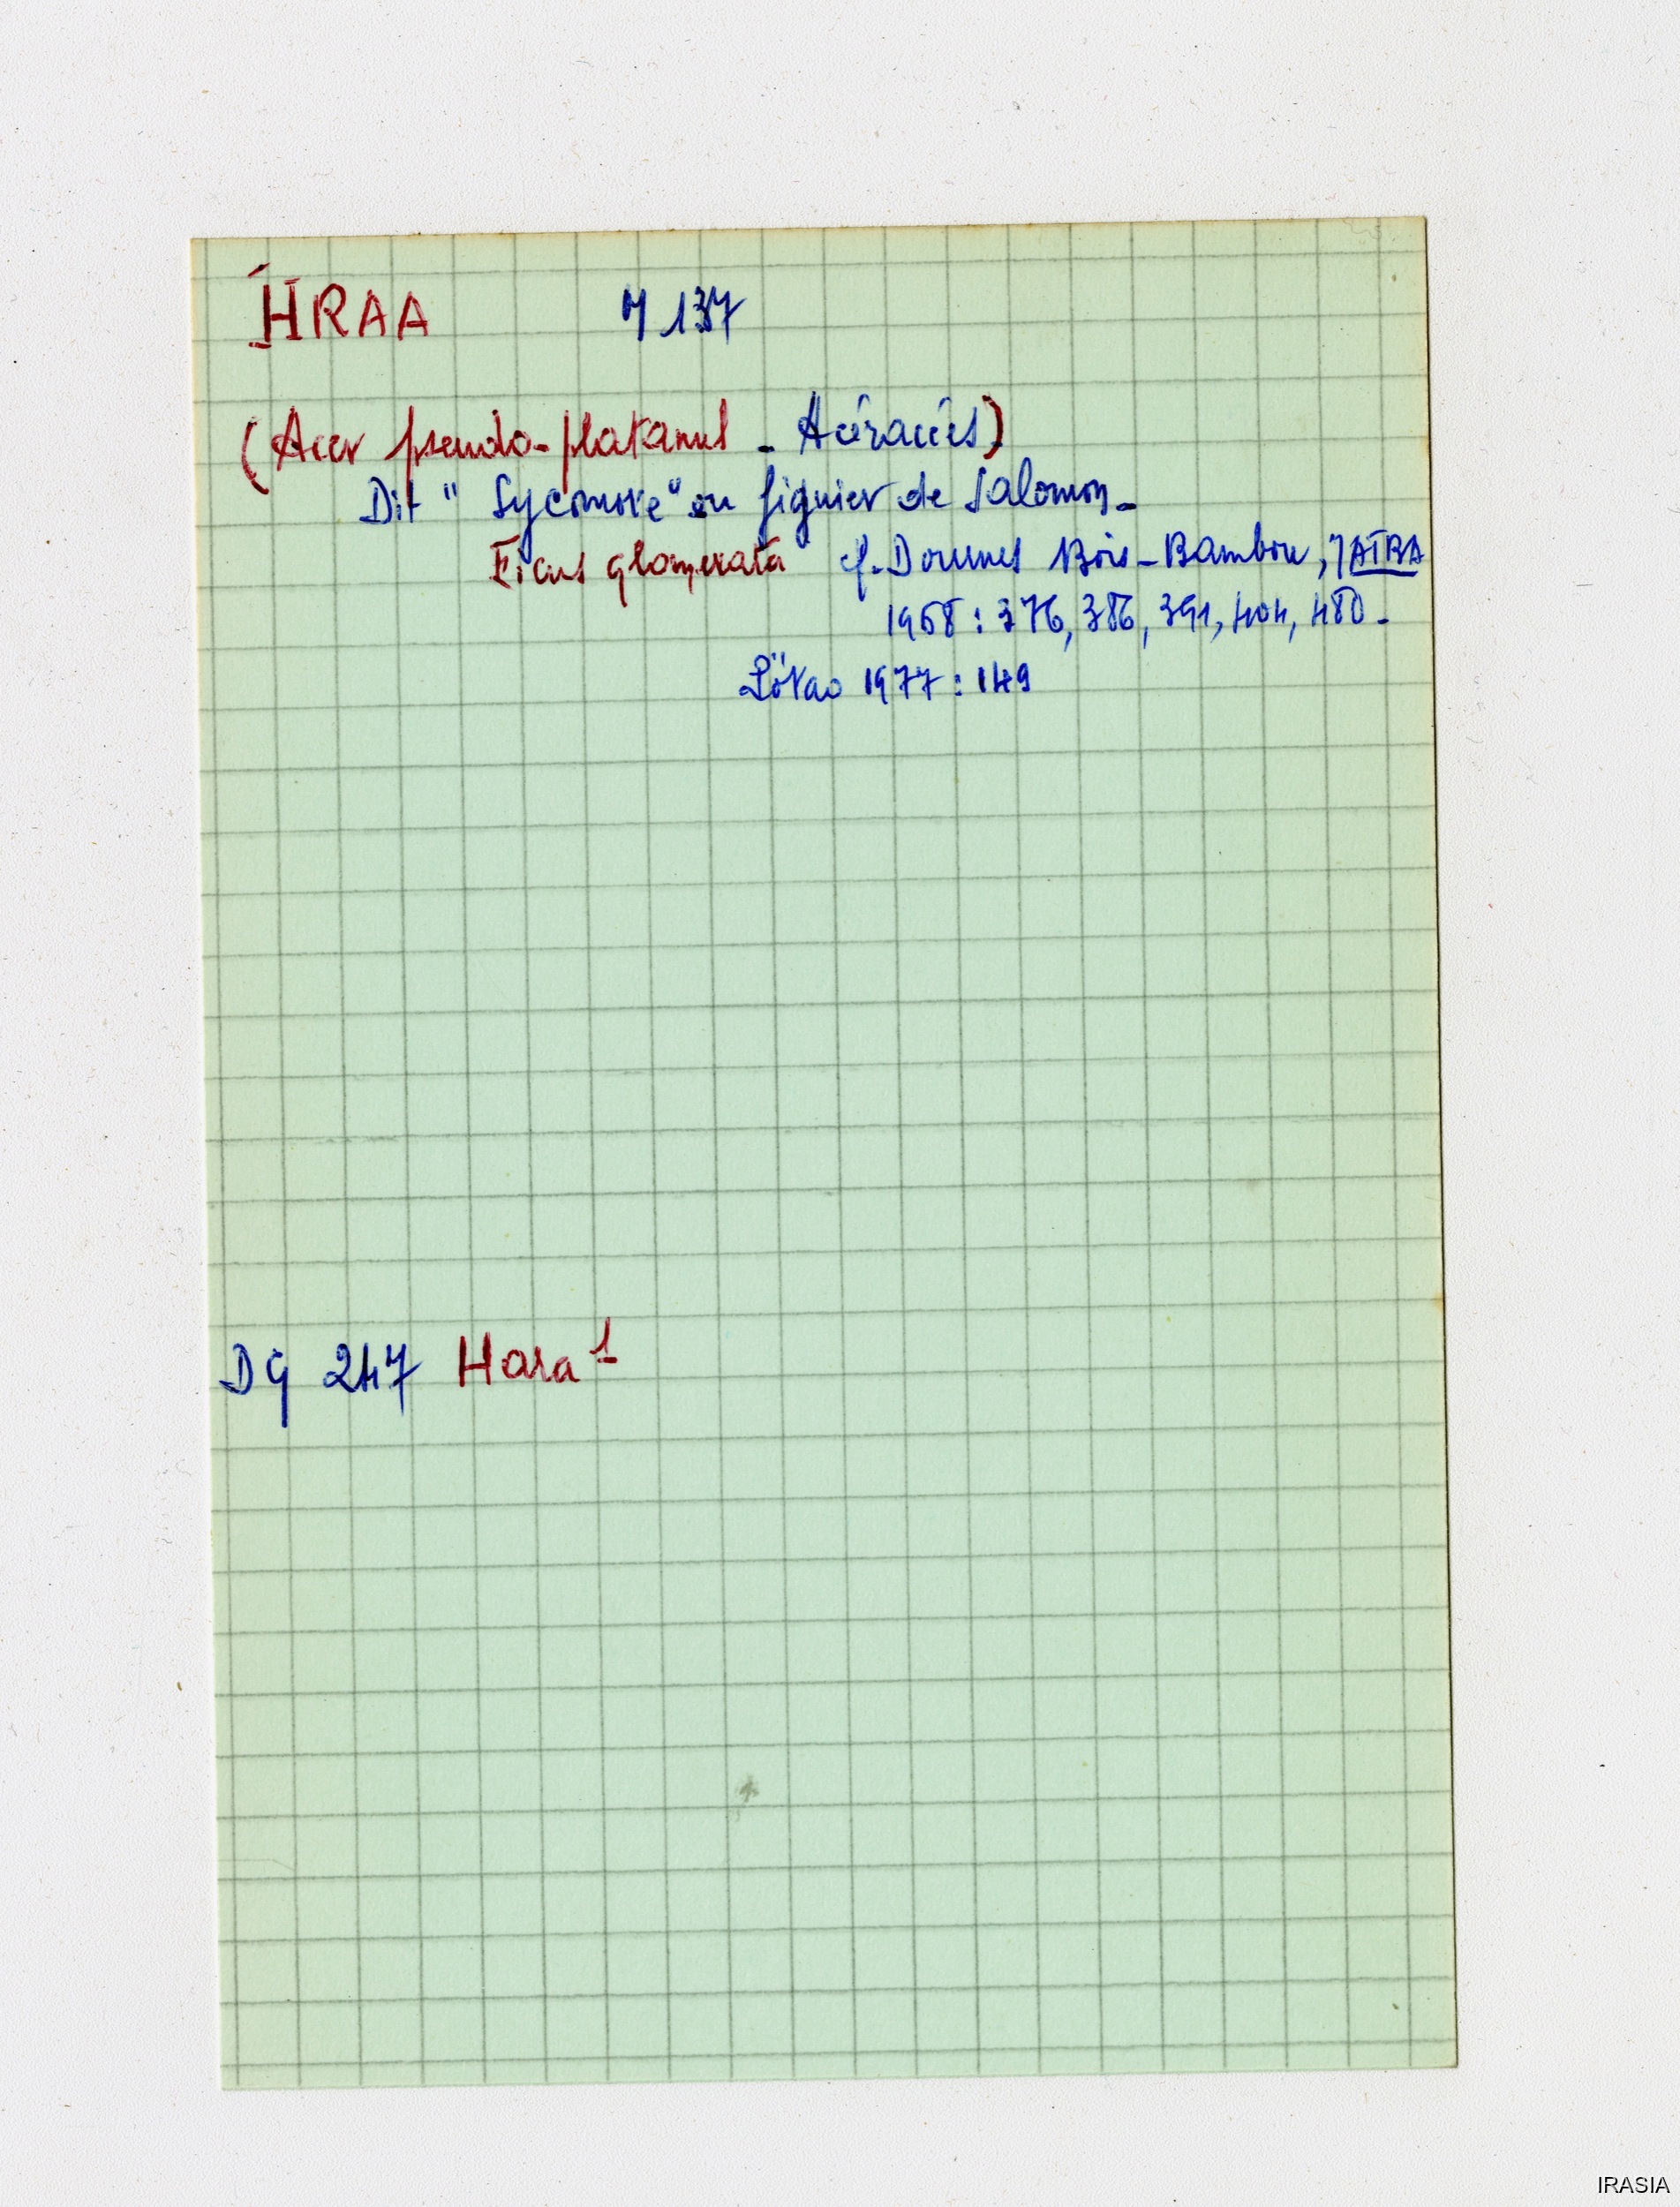 HRAA M 137
(Acer pseudo-platanus - Acéracées)
Dit "Sycomore" ou figuier de Salomon -
Ficus glomerata cf. Dournes Bois-Bambou, JATBA
1968 : 376, 386, 391, 404, 480 -
Pötao 1977 : 149
DG 247 Hara 1
IRASIA